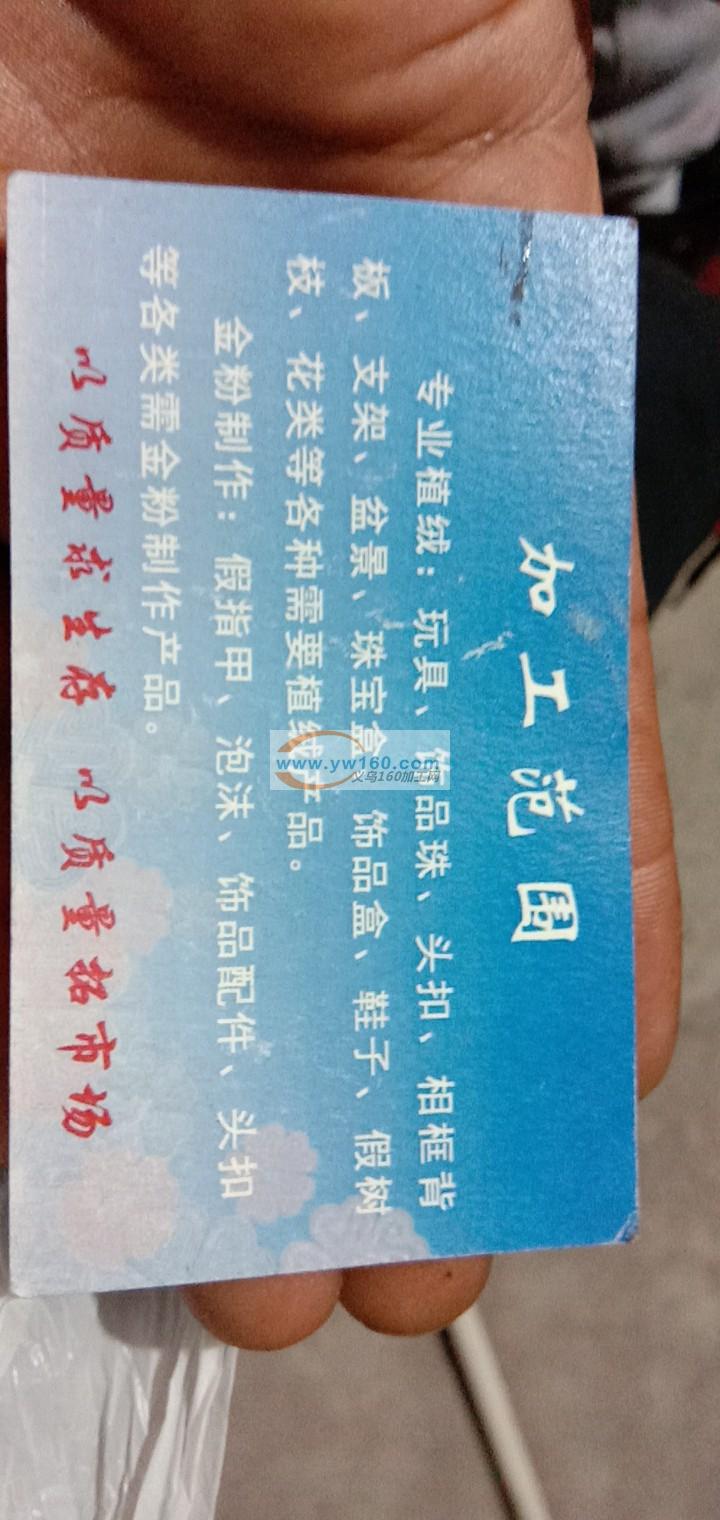 加工范围
专业植绒：玩具、饰品珠、头扣、相框背
板、支架、盆景、珠宝盒、饰品盒、鞋子、假树
枝、花类等各种需要植绒产品。
金粉制作：假指甲、泡沫、饰品配件、头扣
等各类需金粉制作产品。
以质量求生存 以质量拓市场
www.yw160.com
义乌160加工网